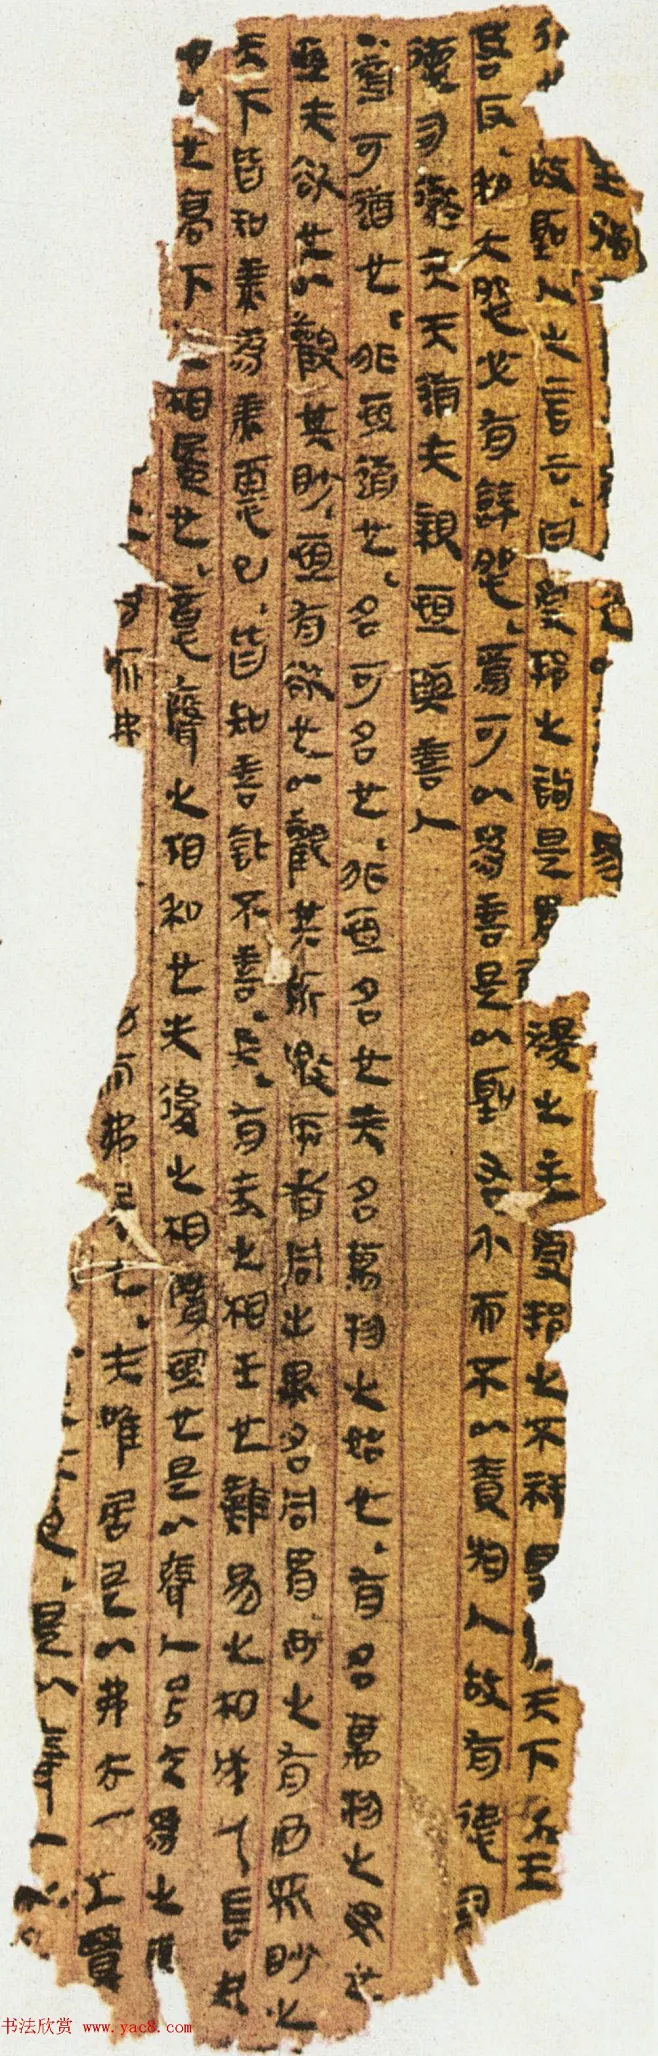 強 易
行也故聖人之言云曰受邦之詢是胃稷之主受邦之不祥是胃天下之王
若反和大怨必有餘怨焉可以為善是以聖右介而不以責於人故有德司
德司徹夫天道无親恒與善人
道可道也非恒道也名可名也非恒名也无名萬物之始也有名萬物之母也
恒无欲也以觀其眇恒有欲也以觀其所噭兩者同出異名同胃玄之有玄眾眇之
天下皆知美為美惡已皆知善訾不善矣有无之相生也難易之相成也長短
也高下之相盈也意聲之相和也先後之相隋恒也是以聲人居无為之
而弗 而弗居也夫唯居是以弗去不上賢
是以聲人
书法欣赏 www.yac8.com